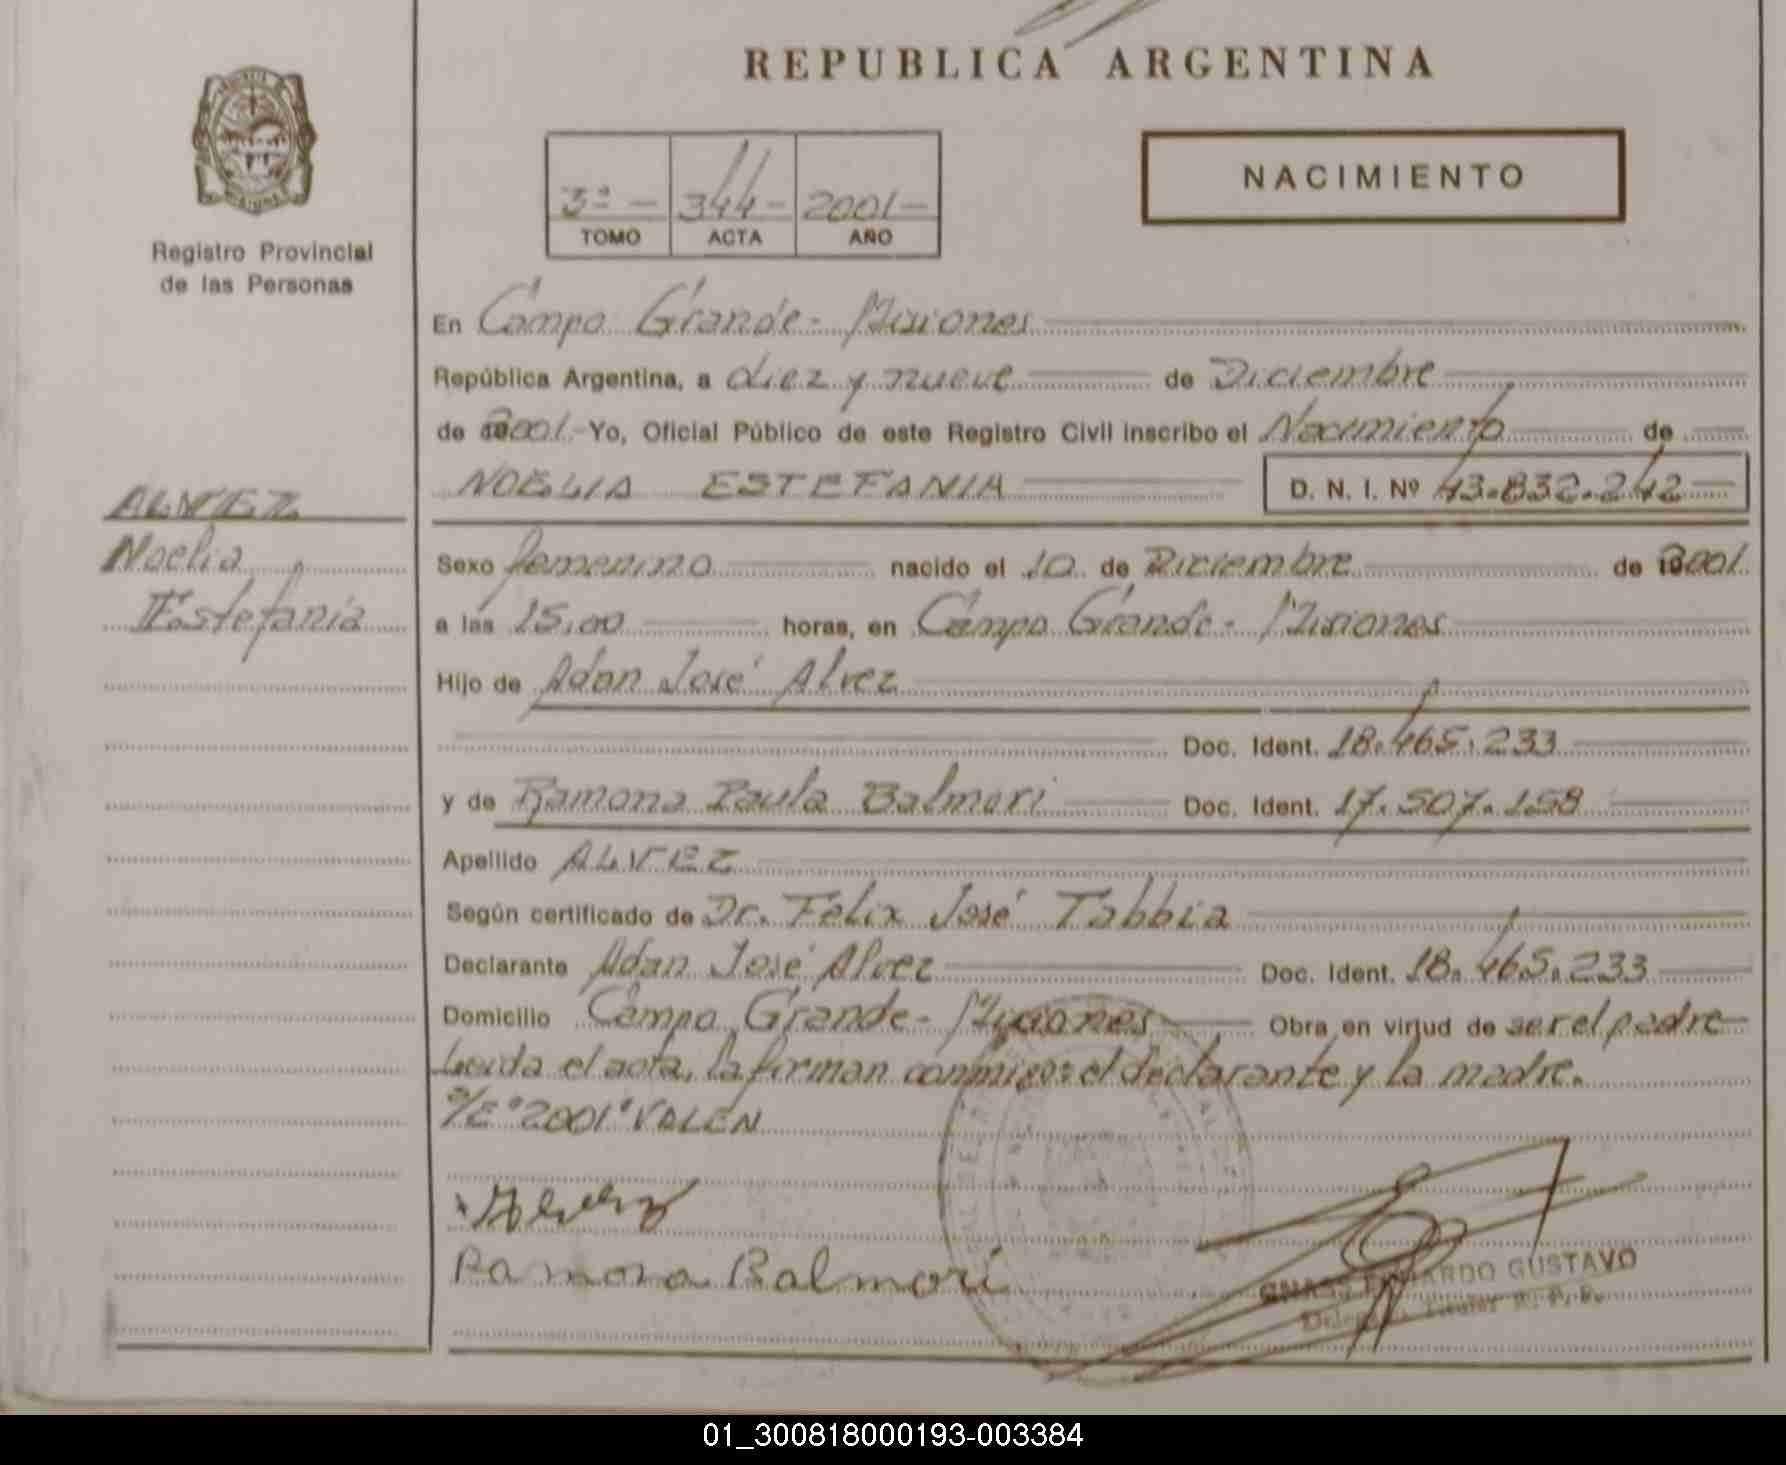 REPUBLICA ARGENTINA
Registro Provincial
de las Personas
3ª - 344 - 2001 -
TOMO ACTA AÑO
NACIMIENTO
En Campo Grande - Misiones
República Argentina, a diez y nueve de Diciembre
de 2001. Yo, Oficial Público de este Registro Civil inscribo el Nacimiento de
NOELIA ESTEFANIA D. N. I. Nº 43.832.242
ALVEZ
Noelia
Estefania
Sexo femenino nacido el 10 de Diciembre de 2001.
a las 15,00 horas, en Campo Grande - Misiones
Hijo de Adan José Alvez
Doc. Ident. 18.465.233
y de Ramona Paula Balmori Doc. Ident. 17.507.158
Apellido ALVEZ
Según certificado de Dr. Felix José Tabbia
Declarante Adan José Alvez Doc. Ident. 18.465.233
Domicilio Campo Grande - Misiones Obra en virtud de ser el padre
Leida el acta, la firman conmigo: el declarante y la madre.
S/E "2001" VALEN
Alvez
Ramona Balmori
EDUARDO GUSTAVO
Titular R. P. P.
01_300818000193-003384